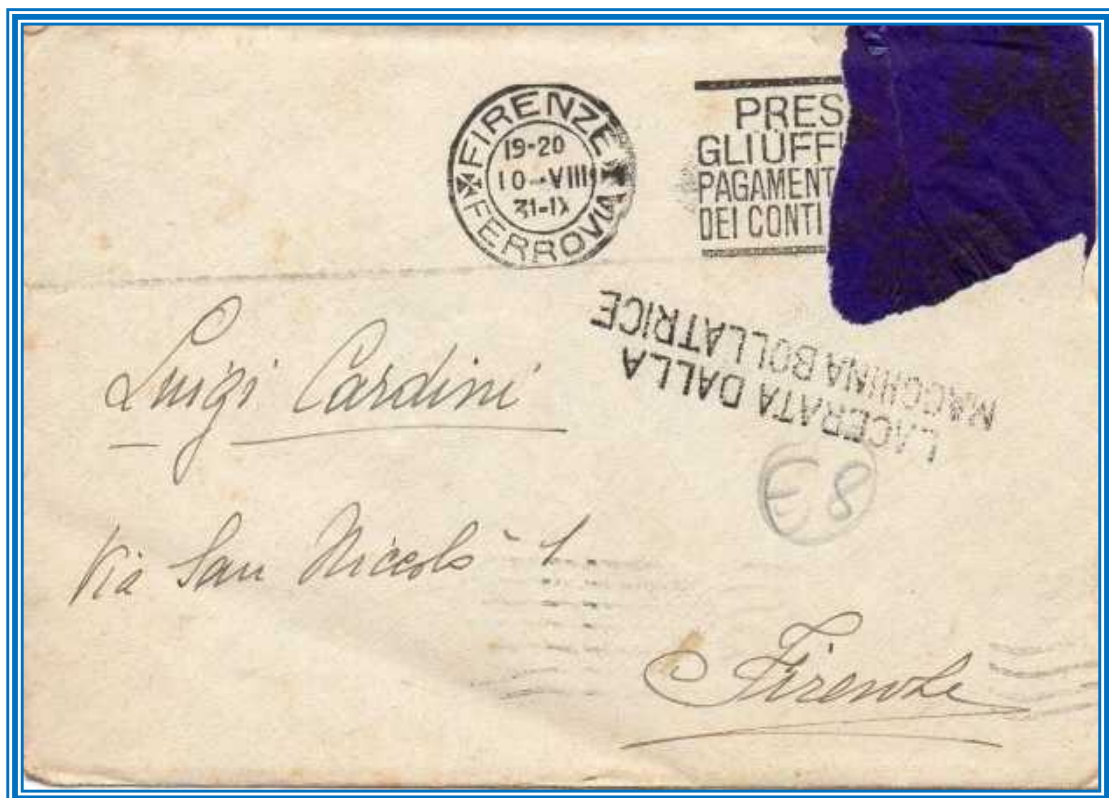 FIRENZE
19-20
10-VIII
31-IX
FERROVIA
PRES
GLI UFFI
PAGAMENT
DEI CONTI
LACERATA DALLA
MACCHINA BOLLATRICE
Luigi Cardini
E8
Via San Niccolò 1
Firenze